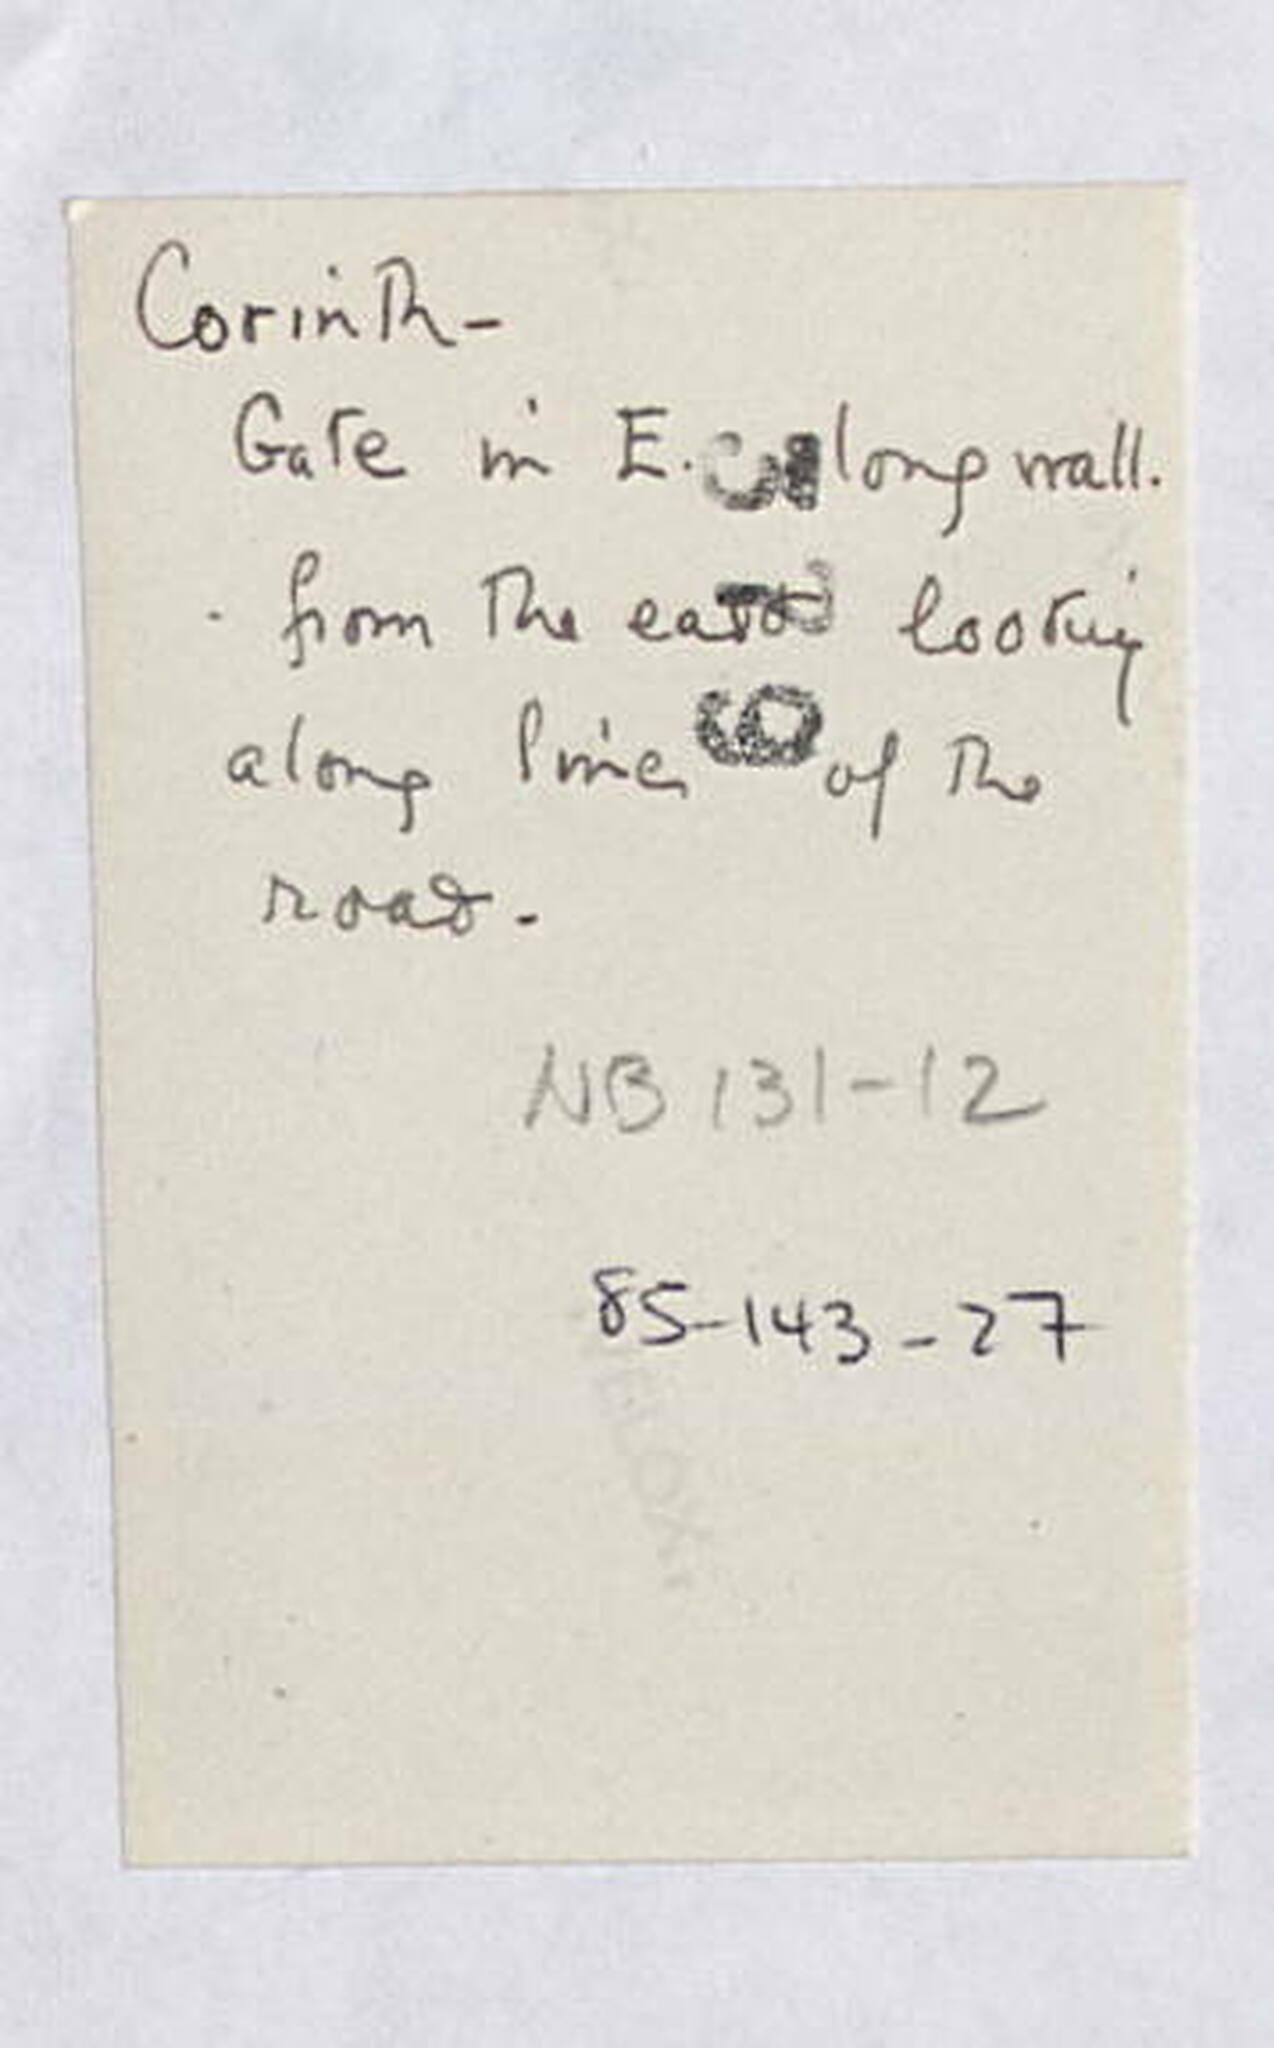 Corinth -
Gate in E. long wall.
from the east looking
along line of the
road.
NB 131-12
85-143-27